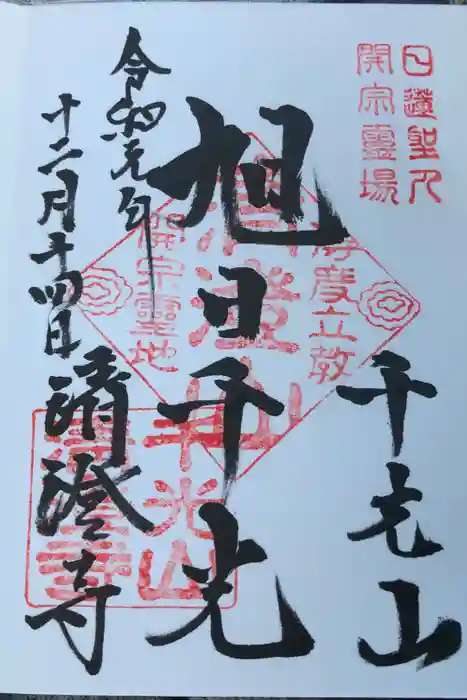 日蓮聖人
開宗霊場
千光山
旭日千光
清澄山
建長五年
開宗霊地
令和元年
十二月十四日
清澄寺
千光山
清澄寺